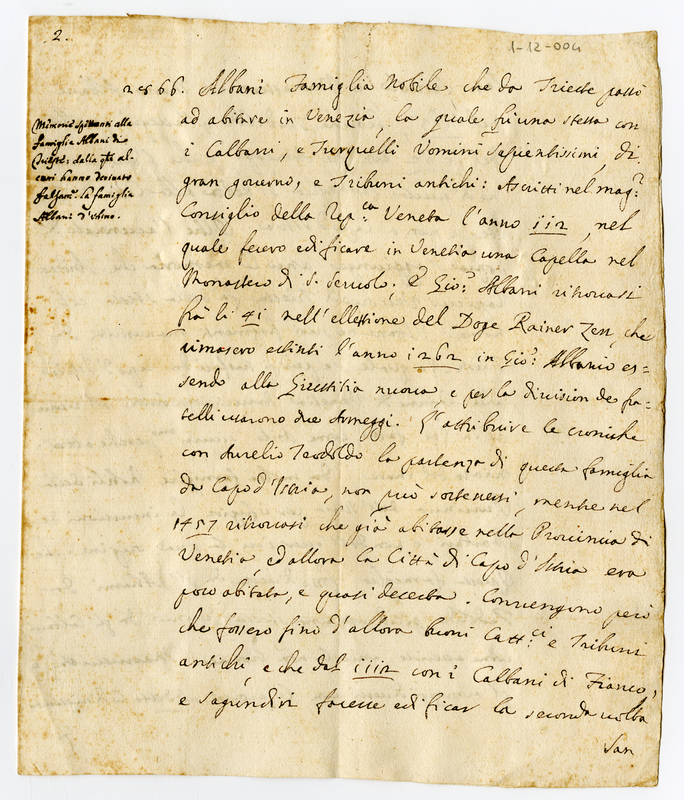 2.
1-12-004
Memorie spettanti alla
famiglia Albani di
Trieste: dalla qle al-
cuni hanno derivato
falsamte la famiglia
Albani d'Urbino.
2866. Albani Famiglia Nobile che da Trieste passò
ad abitare in Venezia, la quale fù una stessa con
i Calbani, e Turquelli Uomini Sapientissimi, di
gran governo, e Tribuni antichi: Ascritti nel magr
Consiglio della Rep:ca Veneta l'anno 1112, nel
quale fecero edificare in Venetia una Capella nel
Monastero di S. Servolo; e Gio: Albani ritrovasi
frà li 41 nell'ellettione del Doge Rainer Zen, che
rimasero estinti l'anno 1262 in Gio: Albanio es=
sendo alla Giustitia nuova, e per la division de fra=
telli usarono due Armeggi. L'attribuire le croniche
con Aurelio Teodoldo la partenza di questa famiglia
da Capo d'Istria, non può sostenersi, mentre nel
1457 ritrovasi che già abitasse nella Provincia di
Venetia, ed allora la Città di Capo d'Istria era
poco abitata, e quasi deserta. Convengono però
che fossero fino d'allora buoni Catt:ci e Tribuni
antichi, e che dal 1112 con i Calbani di Franco,
e Sagundivi facesse edificar la seconda volta
San